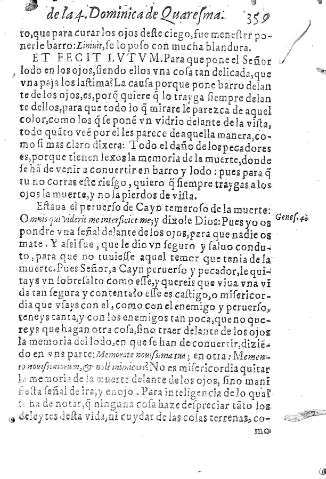 de la 4. Dominica de Quaresma. 359
to, que para curar los ojos deste ciego, fue menester po-
nerle barro: Linivit, se lo puso con mucha blandura.
ET FECIT LVTVM. Para que pone el Señor
lodo en los ojos, siendo ellos vna cosa tan delicada, que
vna paja los lastima? La causa porque pone barro delan
te de los ojos, es, porq̃ quiere q̃ lo trayga siempre delan
te dellos, para que todo lo q̃ mirare le parezca de aquel
color, como los q̃ se ponẽ vn vidrio delante de la vista,
todo quãto veẽ por el les parece de aquella manera, co-
mo si mas claro dixera: Todo el daño de los pecadores
es, porque tienen lexos la memoria de la muerte, donde
se hã de venir a conuertir en barro y lodo: pues para q̃
tu no corras este riesgo, quiero q̃ siempre traygas a los
ojos la muerte, y no la pierdas de vista.
Estaua el peruerso de Cayn temeroso de la muerte:
Omnis qui viderit me interficiet me, y dixole Dios: Pues yo os
pondre vna señal delante de los ojos, para que nadie os
mate. Y assi fue, que le dio vn seguro y saluo condu-
to, para que no tuuiesse aquel temor que tenia de la
muerte. Pues Señor, a Cayn peruerso y pecador, le qui-
tays vn sobresalto como esse, y quereis que viua vna vi
da tan segura y contenta? o esse es castigo, o misericor-
dia que vsays con el, como con el enemigo y peruerso,
teneys tanta, y con los enemigos tan poca, que no que-
reys que hagan otra cosa, sino traer delante de los ojos
la memoria del lodo, en que se han de conuertir, dizié-
do en vns parte: Memorare nouissima tua; en otra: Memen-
to nouissimorum, & noli inimicari? No es misericordia quitar
la memoria de la muerte delante de los ojos, sino mani
fiesta señal de ira, y enojo. Para inteligencia de lo qual
se ha de notar, q̃ ninguna cosa haze despreciar tãto los
deleytes desta vida, ni cuydar de las cosas terrenas, co-
mo
Genes. 4.